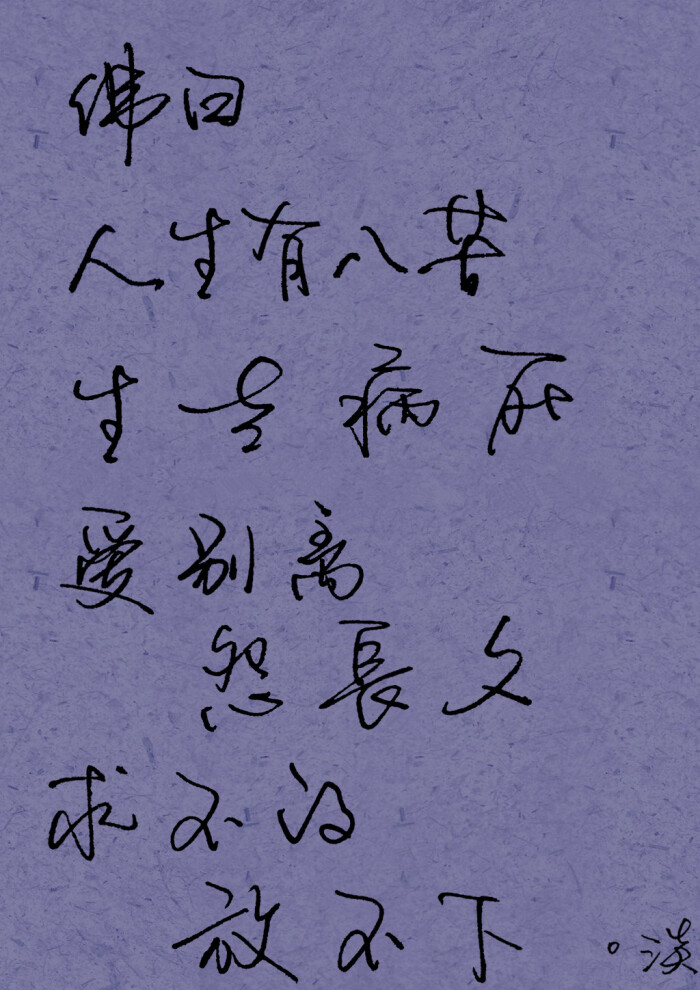 佛曰
人生有八苦
生老病死
爱别离
怨長久
求不得
放不下
。淡